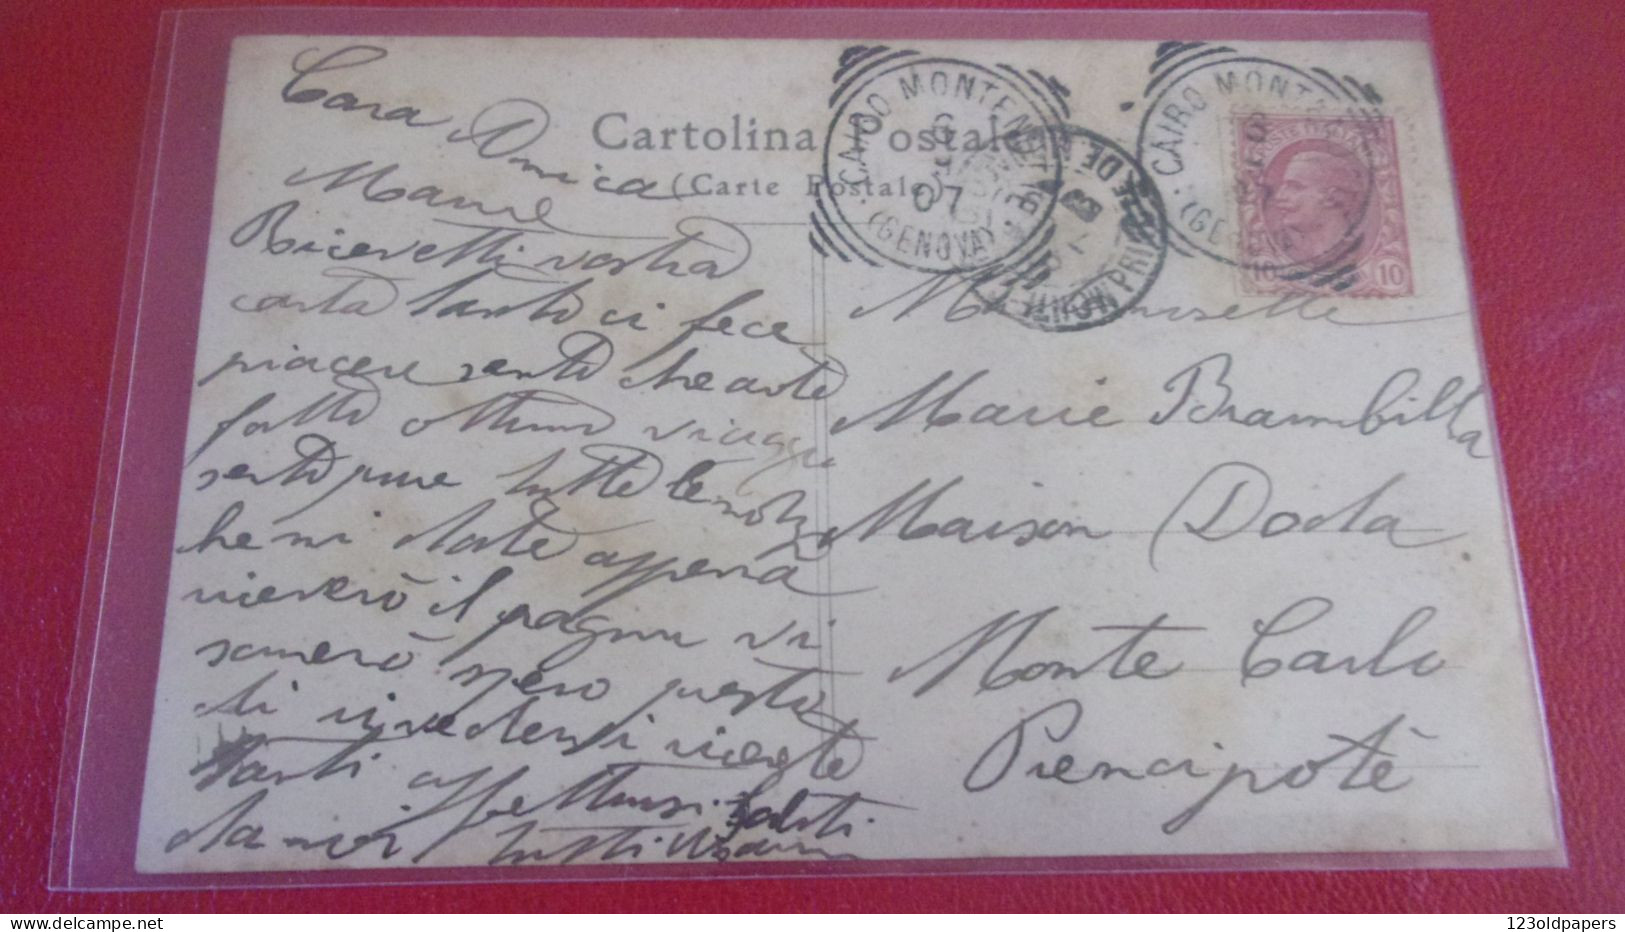 Cara Amica
Cartolina Postale
(Carte Postale
Marie
Ricevetti vostra
carta tanto ci fece
piacere sento che avete
fatto ottimo viaggio
sento pure tutte le notizie
che mi date appena
riceverò il pagnu vi
scriverò spero presto
di rivedersi ricevete
tanti affettuosi saluti
da noi tutti
CAIRO MONTENOTTE
07
(GENOVA)
CAIRO MONTENOTTE
(GENOVA)
10 10
Marie Brambilla
Maison Doda
Monte Carlo
Piencipotè
123oldpapers